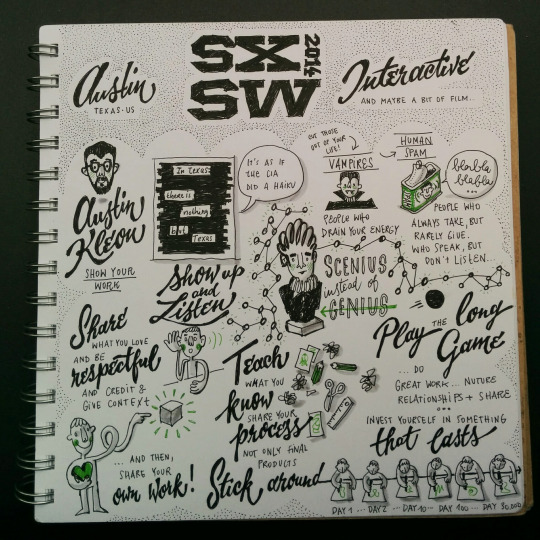 Austin
TEXAS • US
SX
SW
2014
Interactive
AND MAYBE A BIT OF FILM...
Austin
Kleon
SHOW YOUR
WORK
In Texas
there is
nothing
but
Texas
IT'S AS IF
THE CIA
DID A HAIKU
CUT THOSE
OUT OF YOUR
LIFE!
VAMPIRES
PEOPLE WHO
DRAIN YOUR ENERGY
HUMAN
SPAM
blabla
blabla
...
PEOPLE WHO
ALWAYS TAKE, BUT
RARELY GIVE.
WHO SPEAK, BUT
DON'T LISTEN...
Show up
and
Listen
SCENIUS
instead of
GENIUS
Share
WHAT YOU LOVE
AND BE
respectful
AND CREDIT &
GIVE CONTEXT
... AND THEN,
SHARE YOUR
own Work!
Teach
WHAT YOU
know
SHARE YOUR
process
NOT ONLY FINAL
PRODUCTS
Stick around
Play THE long
Game
... DO
GREAT WORK... NUTURE
RELATIONSHIPS + SHARE
ooo
INVEST YOURSELF IN SOMETHING
that lasts
DAY 1 ... DAY 2 ... DAY 10 ... DAY 100 ... DAY 30.000